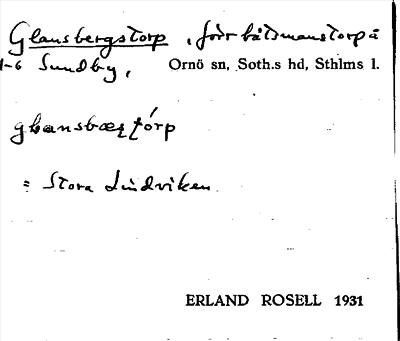 Glansbergstorp, förr båtsmanstorp å
1-6 Sundby, Ornö sn, Soth.s hd, Sthlms l.
glansbærstórp
= Stora Lindviken
ERLAND ROSELL 1931